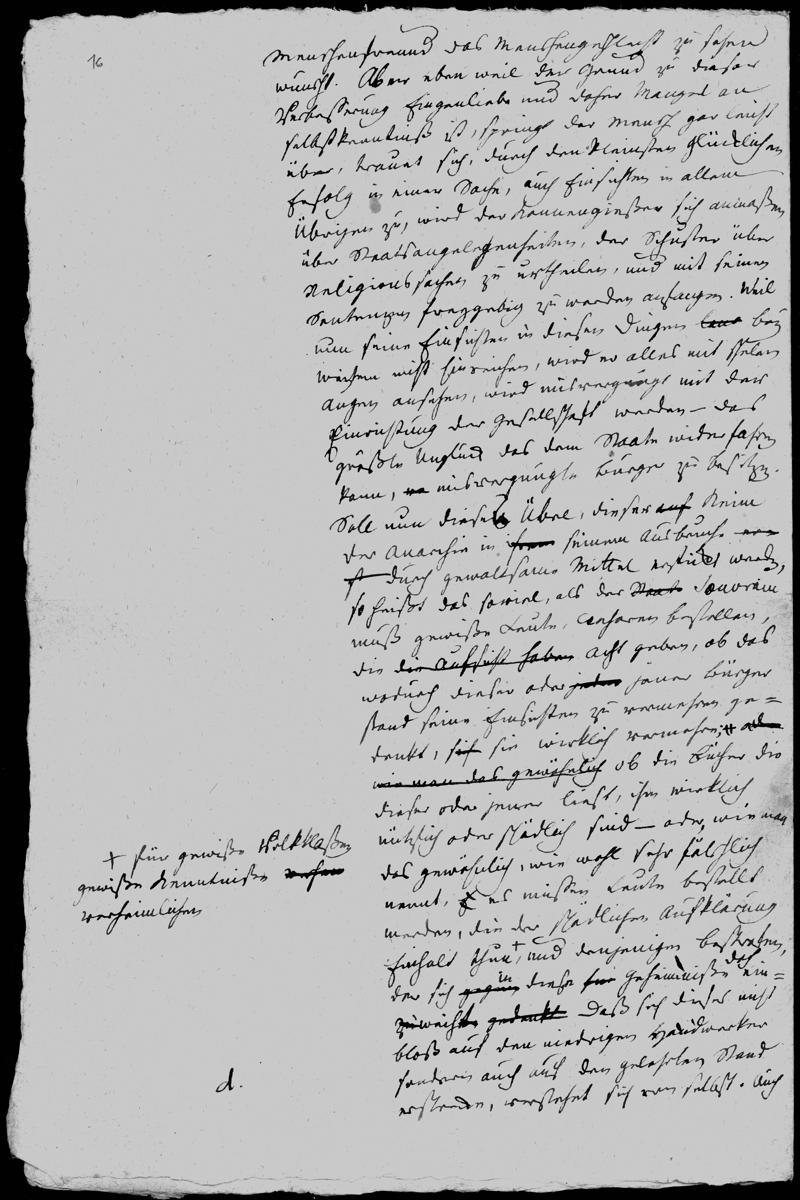 16
Menschenfreund das Menschengeschlecht zu sehen
wünscht. Aber eben weil der Grund zu dieser
Verbesserung Eingenliebe und daher Mangel an
selbstkenntniß ist, springt der Mensch gar leicht
über, trauet sich, durch den kleinsten glücklichen
Erfolg in einer Sache, auch Einsichten in allem
Übrigen zu, wird der Kannengießer sich anmaßen
über Staatsangelegenheiten, der Schuster über
Religionssachen zu urtheilen, und mit seinen
Sentenzen freygebig zu werden anfangen. Weil
nun seine Einsichten in diesen Dingen bey
weitem nicht hinreichen, wird er alles mit schelen
Augen ansehen, wird misvergnügt mit der
Einrichtung der Gesellschaft werden – das
größte Unglück das dem Staate widerfahren
kann, misvergnügte Bürger zu besitzen.
Soll nun dieses Übel, dieser auf Keim
der Anarchie in seinem Ausbruche
durch gewaltsame Mittel erstickt werden,
so heißt das soviel, als der Staat Souverain
muß gewiße Leute, Censoren bestellen,
die die Aufsicht haben acht geben, ob das
wodurch dieser oder jeder jener Bürger
stand seine Einsichten zu vermehren ge=
denkt, sich sie wirklich vermehre; oder
wie man das gewöhnlich ob die Bücher die
dieser oder jener liest, ihm wirklich
nützlich oder schädlich sind – oder, wie man
das gewöhnlich, wie wohl sehr fälschlich
nennt, es müssen Leute bestellt
werden, die der schädlichen Aufklärung
Einhalt thun +, und denjenigen bestrafen,
der sich gegen in diese für Geheimniße doch ein=
zuweihen gedenkt. Daß sich dieses nicht
bloß auf den niedrigen Handwerker
sondern auch auf den gelehrten Stand
erstrecke, verstehet sich von selbst. Auch
+ für gewiße Volksklaßen
gewißen Kenntniße
verheimlichen
d.